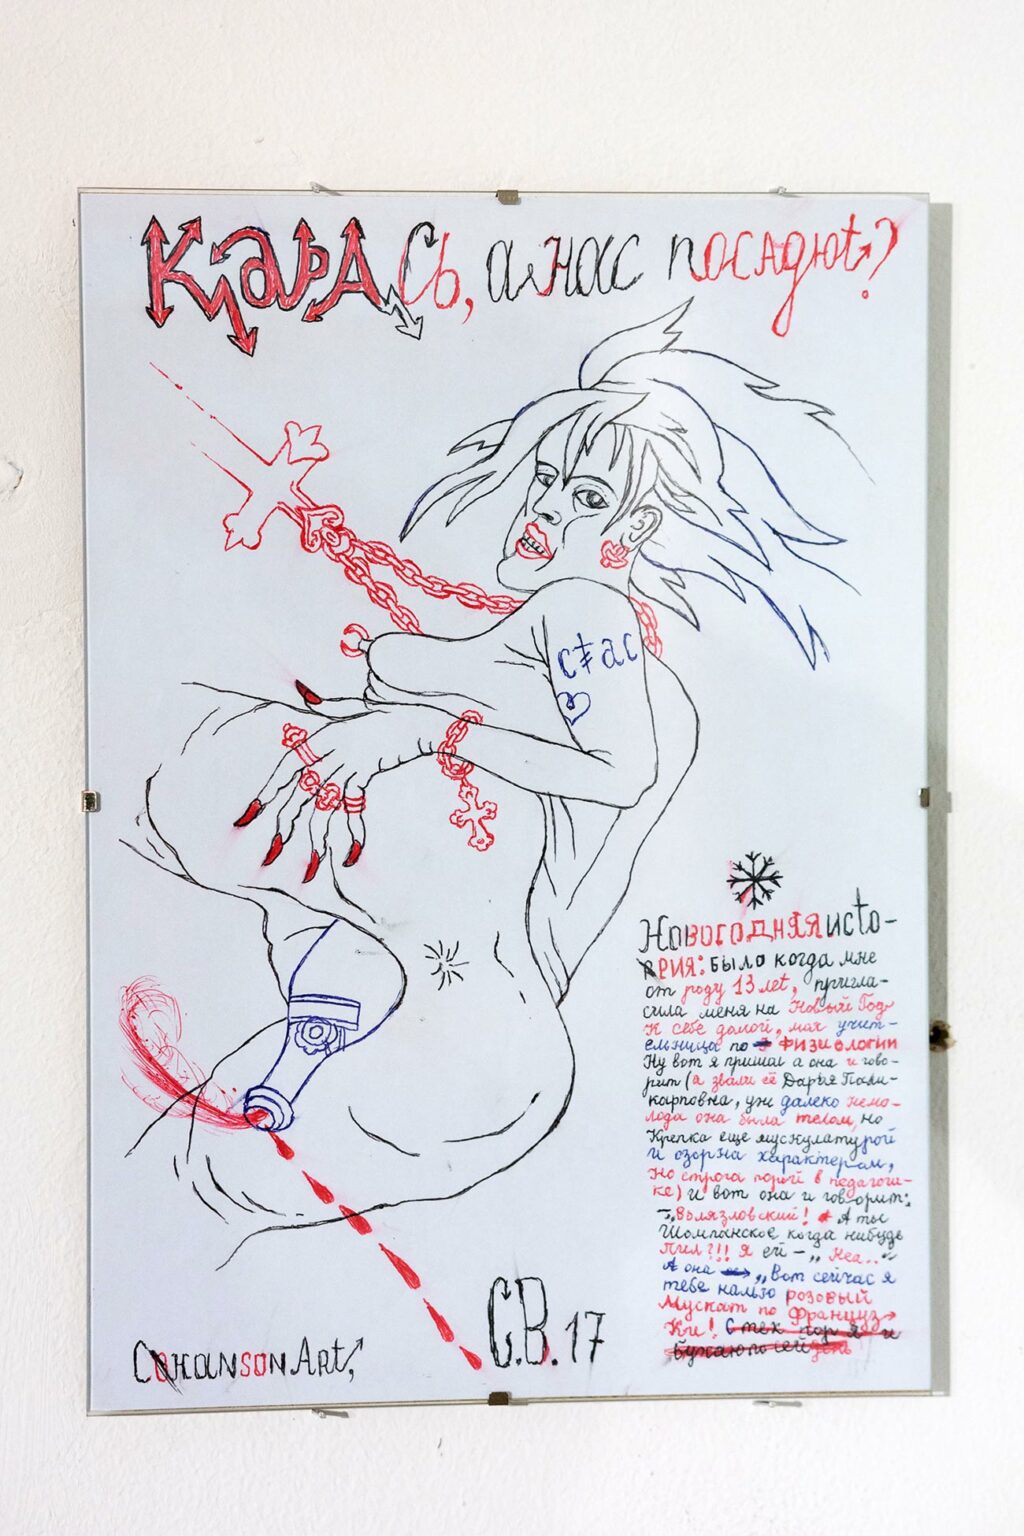 КарАСь, а нас посадюt?
стас
Новогодняя исtо-
РИЯ: Было когда мне
от роду 13 лет, пригла-
сила меня на Новый Год
К себе домой, моя учит-
ельница по физиологии
Ну вот я пришол а она и гово-
рит (а звали её Дарья Поли-
карповна, уж далеко немо-
лода она была телом, но
Крепка еще мускулатурой
и озорна характером,
Но строга порой в педагоги-
ке) и вот она и говорит:
-„Волязловский! А ты
Шомпанское когда нибудь
Пил?!!! Я ей - „Неа..“
А она „Вот сейчас я
тебе налью розовый
Мускат по Француз
Ки! С тех пор я и
бухаю по сей день
С.В. 17
CoxansonArt,